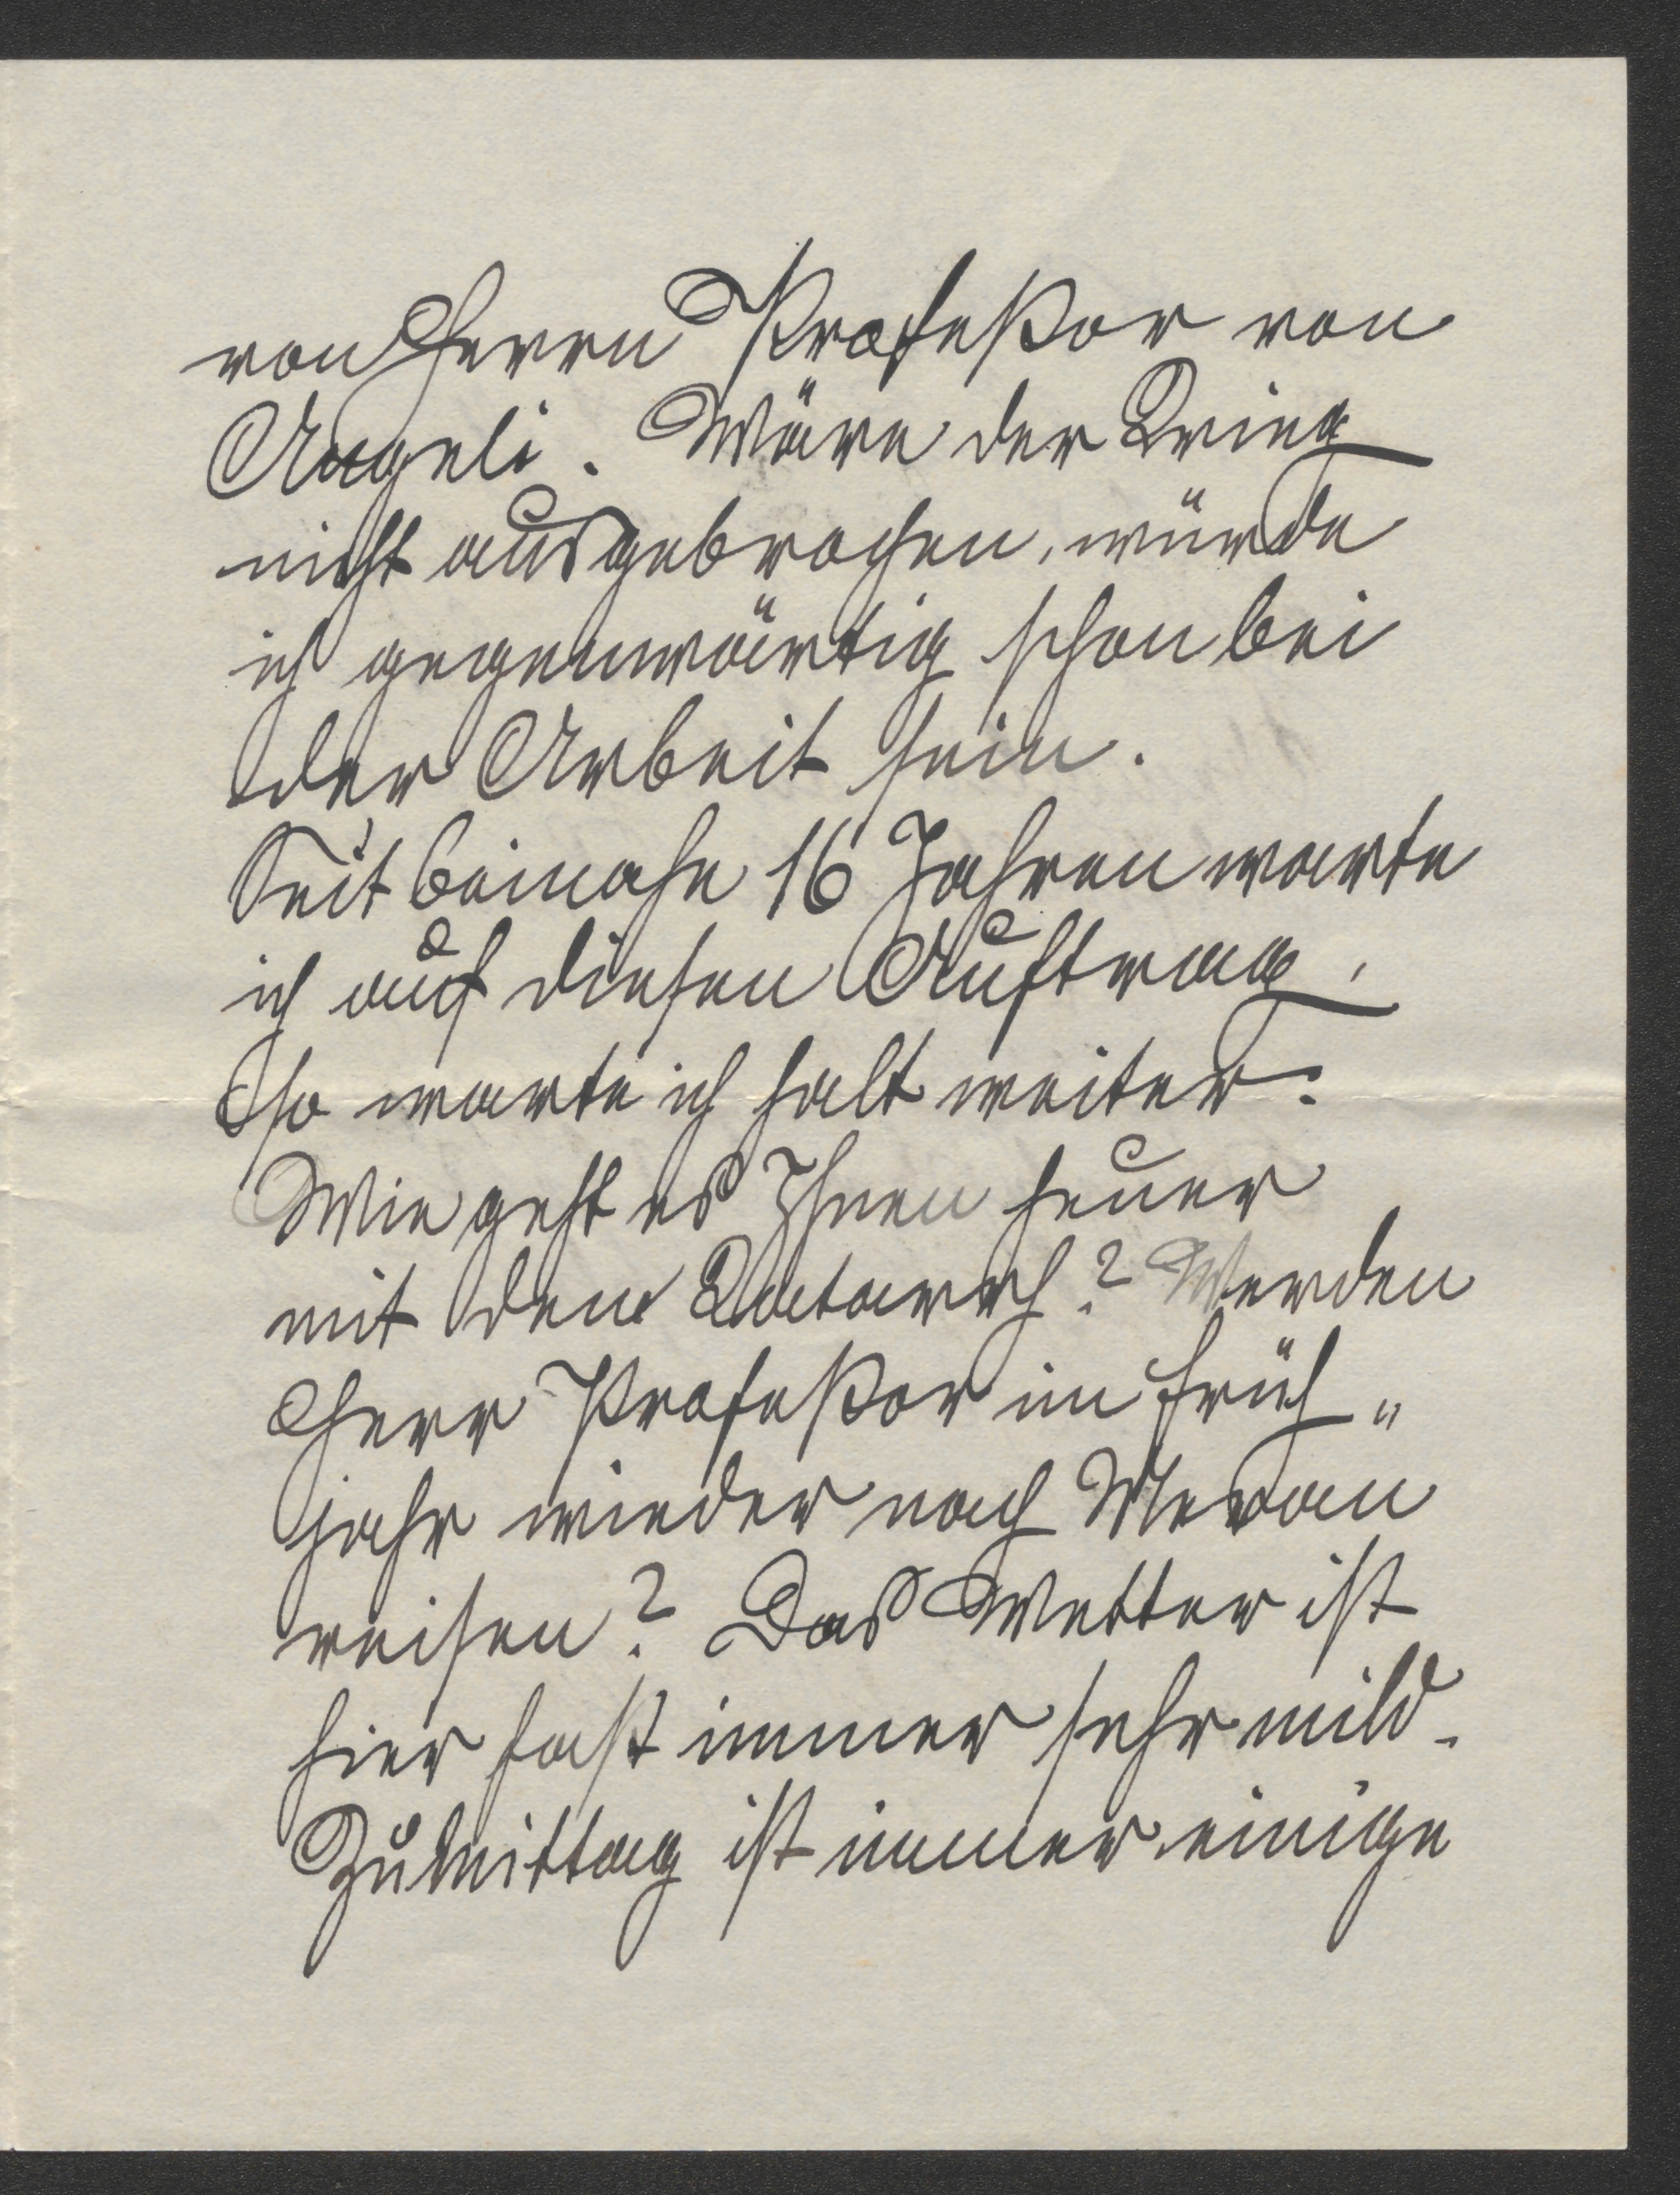 von Herrn Profeßor von
Angeli. Wäre der Krieg
nicht ausgebrochen, würde
ich gegenwärtig schon bei
der Arbeit sein.
Seit beinahe 16 Jahren warte
ich auf diesen Auftrag,
so warte ich halt weiter.
Wie geht es Ihnen heuer
mit dem Katarrh? Werden
Herr Profeßor im Früh„
jahr wieder nach Meran
reisen? Das Wetter ist
hier fast immer sehr mild.
Zu Mittag ist immer einige